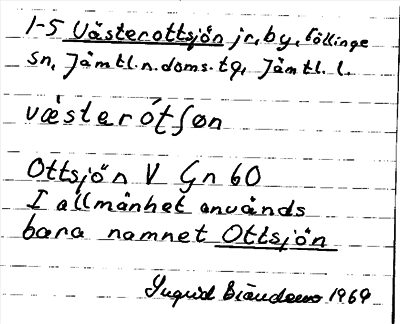 1-5 Västerottsjön jr, by, Föllinge
sn, Jämtl. n. doms. tg, Jämtl. l.
västerótʃøn
Ottsjön V Gn 60
I allmänhet används
bara namnet Ottsjön
Ingrid 1969